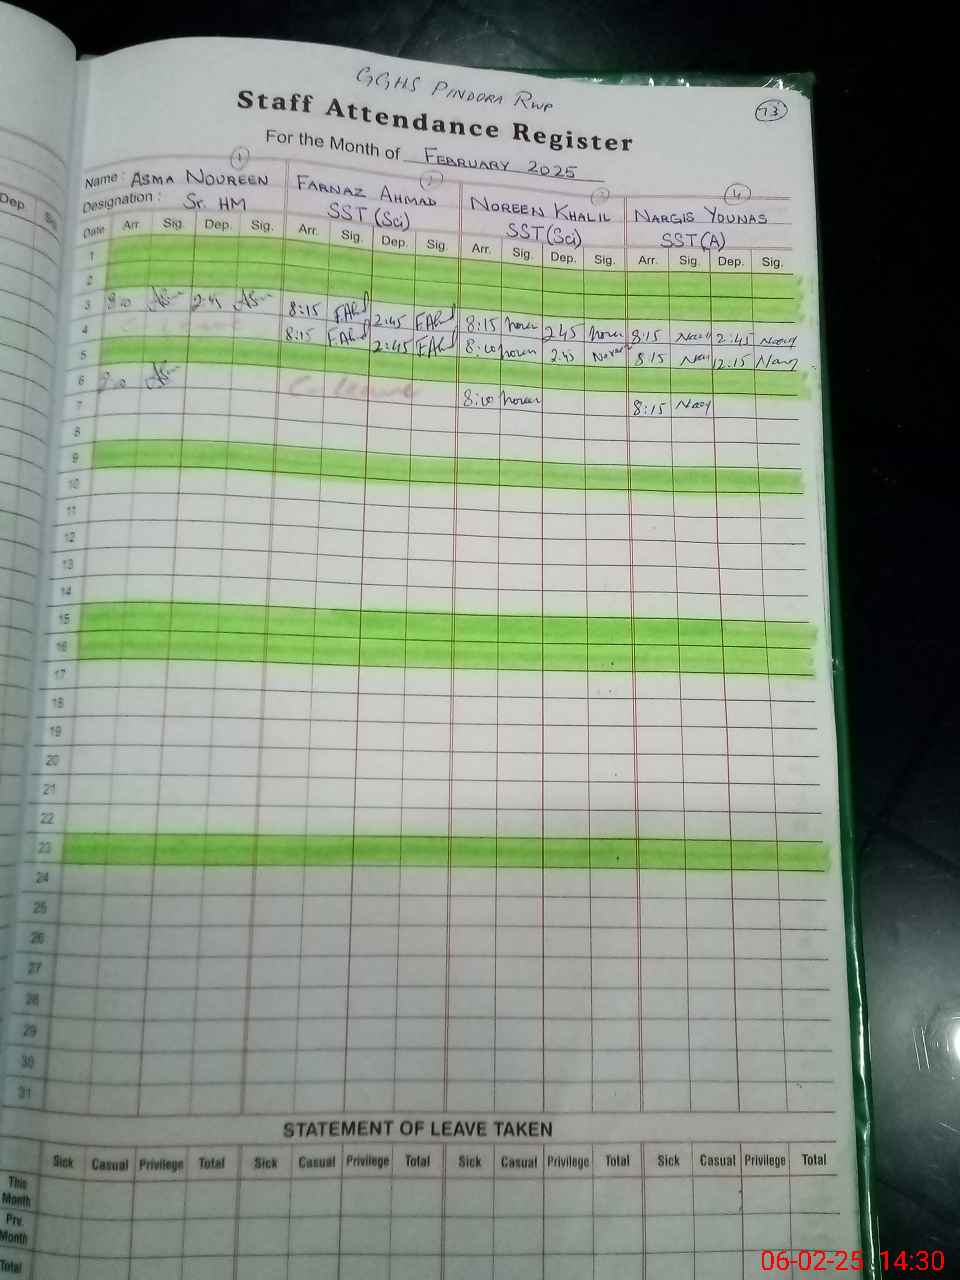 GGHS PINDORA RWP
13
Staff Attendance Register
For the Month of FEBRUARY 2025
1 2 3 4
Name : ASMA NOUREEN FARNAZ AHMAD NOREEN KHALIL NARGIS YOUNAS
Designation : Sr. HM SST (Sci) SST (Sci) SST (A)
Date Arr. Sig. Dep. Sig. Arr. Sig. Dep. Sig. Arr. Sig. Dep. Sig. Arr. Sig. Dep. Sig.
1
2
3 8:15 2:45 8:15 2:45 8:15 2:45
4 C. Leave 8:15 2:45 8:10 2:45 8:15 12:15
5
6 C. Leave 8:10 8:15
7
8
9
10
11
12
13
14
15
16
17
18
19
20
21
22
23
24
25
26
27
28
29
30
31
STATEMENT OF LEAVE TAKEN
Sick Casual Privilege Total Sick Casual Privilege Total Sick Casual Privilege Total Sick Casual Privilege Total
This Month
Prv. Month
Total
Dep
06-02-25 14:30